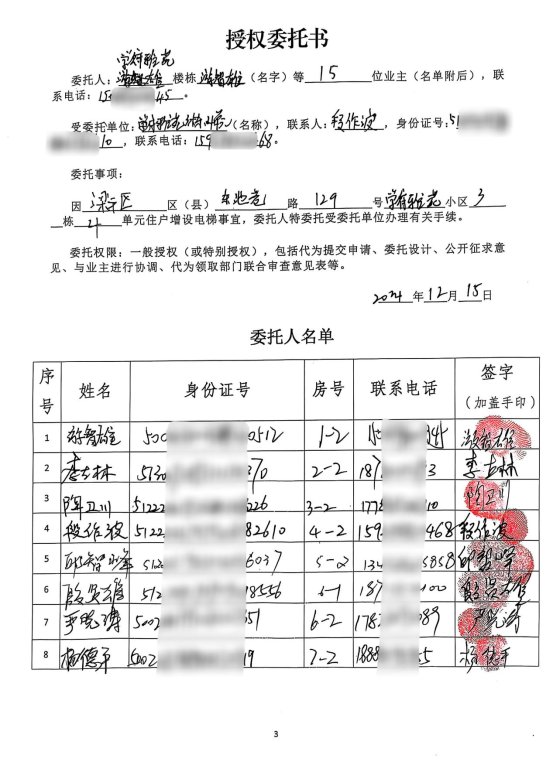 授权委托书
学府雅苑
委托人：游智雄 楼栋 游智雄（名字）等 15 位业主（名单附后），联
系电话：15 45 。
受委托单位：（名称），联系人：段作波，身份证号：51
10，联系电话：159 68。
委托事项：
因 梁平区 区（县） 路 129 号 学府雅苑 小区 3
栋 4 单元住户增设电梯事宜，委托人特委托受委托单位办理有关手续。
委托权限：一般授权（或特别授权），包括代为提交申请、委托设计、公开征求意
见、与业主进行协调、代为领取部门联合审查意见表等。
2024 年 12 月 15 日
委托人名单
序号 姓名 身份证号 房号 联系电话 签字（加盖手印）
1 游智雄 500 0512 1-2 游智雄
2 李大林 5130 370 2-2 187 3 李大林
3 陈卫川 51222 226 3-2 177 10 陈卫川
4 段作波 5122 82610 4-2 159 468 段作波
5 邱智 512 6037 5-2 134 5858 邱智
6 512 18556 187 100
7 尹晓涛 5002 351 6-2 178 089 尹晓涛
8 杨德平 5002 19 7-2 1888 55 杨德平
3